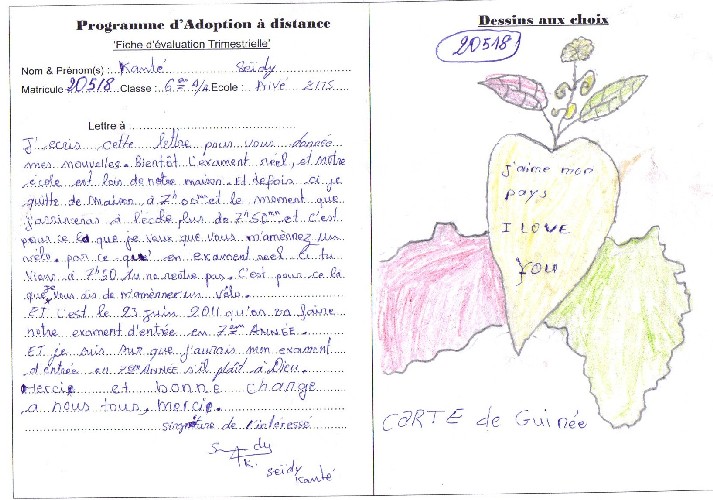 Programme d'Adoption à distance
'Fiche d'évaluation Trimestrielle'
Nom & Prénom(s) : Kanté Seïdy
Matricule 20518 Classe : 6ème A/4 Ecole : Privé
Lettre à
J'ecris cette lettre pour vous donnée
mes nouvelles. Bientôt l'exament réel, et notre
école est lois de notre maison. Et defois si je
quitte de maison à 7h ocmn et le moment que
j'arriveras à l'école plus de 7h 50mn et c'est
pour ce la que je veux que vous m'amènnez un
vélo. par ce que en exament reel si tu
viens à 7h50 tu ne rentre pas. C'est pour ce la
que je vous dis de m'amènner un vélo.
ET c'est le 23 juin 2011 qu'on va faire
notre exament d'entrée en 7ème ANNÉE.
ET je suis sur que j'aurais mon exament
d'entrée en 7ème ANNEE s'il plaît à Dieu.
Mercie et bonne change
a nous tous. Mercie.
signature de l'intéressé
Seïdy
Kanté
Dessins aux choix
20518
j'aime mon
pays
I LOVE
YOU
CARTE de Guinée